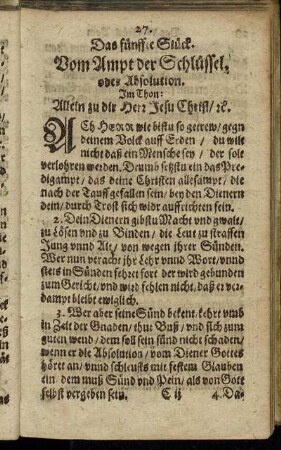 27.
Das fünffte Stück.
Vom Ampt der Schlüssel,
oder Absolution.
Im Thon:
Allein zu dir Herr Jesu Christ/ ꝛc.
ACh HErr wie bistu so getrew/ gegn
deinem Volck auff Erden / du wilt
nicht daß ein Mensche sey / der solt
verlohren werden. Drumb setzstu ein das Pre-
digampt / das deine Christen allesampt/ die
nach der Tauff gefallen sein/ bey den Dienern
dein/ durch Trost sich widr auffrichten sein.
2. Dein Dienern gibstu Macht vnd gwalt/
zu Lösen vnd zu Binden/ die Leut zu straffen
Jung vnnd Alt/ von wegen ihrer Sünden.
Wer nun veracht ihr Lehr vnnd Wort/ vnnd
stets in Sünden fehret fort der wird gebunden
zum Gericht/ vnd wird fehlen nicht/ daß er ver-
dampt bleibt ewiglich.
3. Wer aber seine Sünd bekent/ kehrt vmb
in Zeit der Gnaden/ thut Buß/ vnd sich zum
guten wend/ dem soll sein sünd nicht schaden/
wenn er die Absolution / vom Diener Gottes
höret an/ vnnd schleusts mit festem Glauben
ein dem muß Sünd vnd Pein/ als von Gott
selbst vergeben sein. C ij 4. Da-